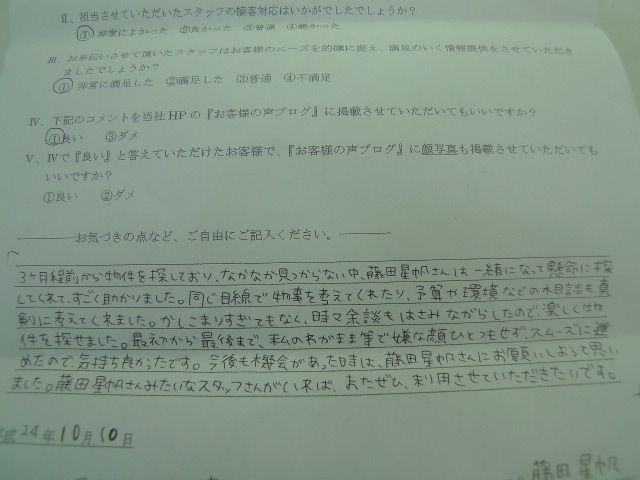 Ⅱ、担当させていただいたスタッフの接客対応はいかがでしたでしょうか？
①非常によかった ②良かった ③普通 ④悪かった
Ⅲ、お手伝いさせて頂いたスタッフはお客様のニーズを的確に捉え、満足のいく情報提供をさせていただき
ましたでしょうか？
①非常に満足した ②満足した ③普通 ④不満足
Ⅳ、下記のコメントを当社HPの『お客様の声ブログ』に掲載させていただいてもいいですか？
①良い ③ダメ
Ⅴ、Ⅳで『良い』と答えていただけたお客様で、『お客様の声ブログ』に顔写真も掲載させていただいても
いいですか？
①良い ②ダメ
お気づきの点など、ご自由にご記入ください。
3ヶ月程前から物件を探しており、なかなか見つからない中、藤田星帆さんは一緒になって懸命に探
してくれて、すごく助かりました。同じ目線で物事を考えてくれたり、予算や環境などの相談も真
剣に考えてくれました。かしこまりすぎてもなく、時々余談もはさみながらしたので、楽しく物
件を探せました。最初から最後まで、私のわがまま等で嫌な顔ひとつもせず、スムーズに進
めたので、気持ち良かったです。今後も機会があった時は、藤田星帆さんにお願いしようと思い
ました。藤田星帆さんみたいなスタッフさんがいれば、またぜひ、利用させていただきたいです。
平成24年10月10日
藤田星帆